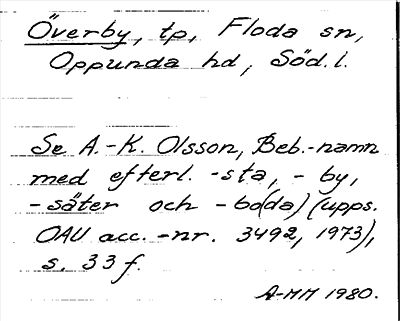 Överby, tp, Floda sn,
Oppunda hd, Söd. l.
Se A.-K. Olsson, Beb.-namn
med efterl. -sta, - by,
-säter och -bo(da) (upps.
OAU acc. -nr. 3492, 1973),
s. 33 f.
A-MM 1980.